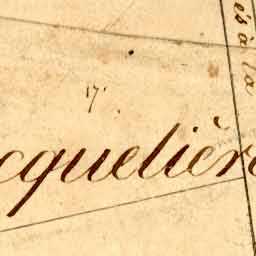 és à la
17
cquelièr